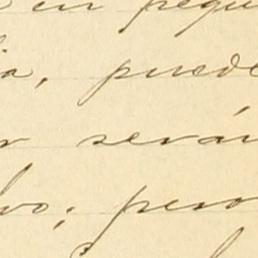 en pequ
ia, puede
r serán
lvo; pero